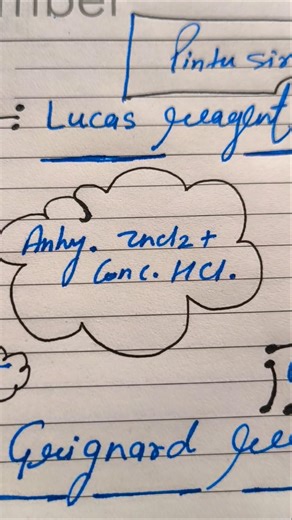 mber
Pintu sir
:- Lucas Reagent
Anhy. ZnCl2 +
Conc. HCl.
Grignard Re